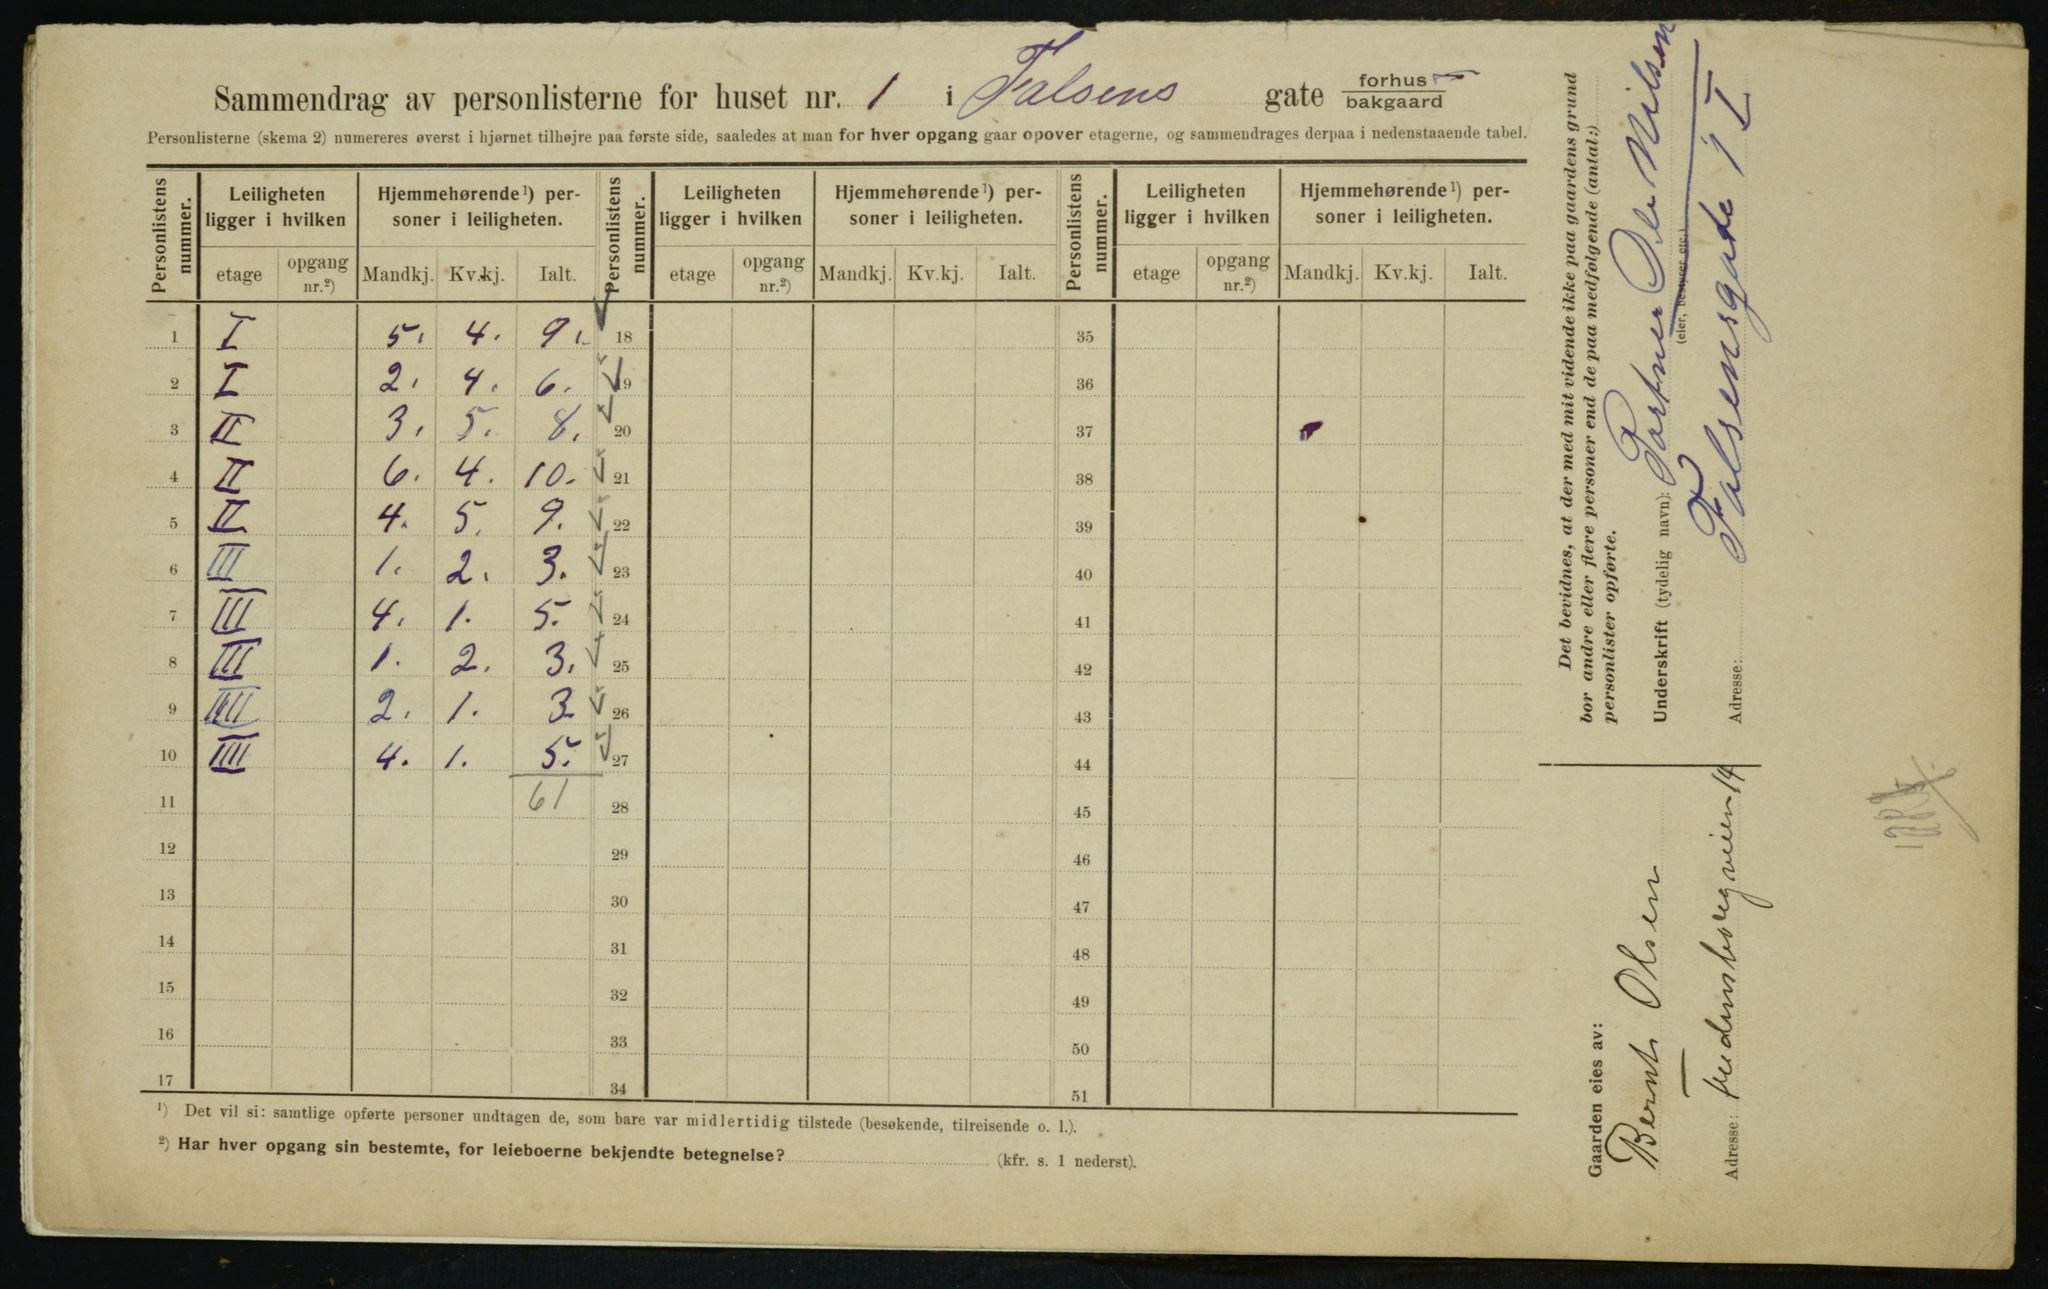 Sammendrag av personlisterne for huset nr. 1 i Falsens gate forhus / bakgaard
Personlisterne (skema 2) numereres øverst i hjørnet tilhøjre paa første side, saaledes at man for hver opgang gaar opover etagerne, og sammendrages derpaa i nedenstaaende tabel.
Personlistens nummer. Leiligheten ligger i hvilken Hjemmehørende¹) personer i leiligheten. Personlistens nummer. Leiligheten ligger i hvilken Hjemmehørende¹) personer i leiligheten. Personlistens nummer. Leiligheten ligger i hvilken Hjemmehørende¹) personer i leiligheten.
etage opgang nr.²) Mandkj. Kv.kj. Ialt. etage opgang nr.²) Mandkj. Kv.kj. Ialt. etage opgang nr.²) Mandkj. Kv.kj. Ialt.
1 I 5. 4. 9. 18 35
2 I 2. 4. 6. 19 36
3 II 3. 5. 8. 20 37
4 II 6. 4. 10. 21 38
5 II 4. 5. 9. 22 39
6 III 1. 2. 3. 23 40
7 III 4. 1. 5. 24 41
8 III 1. 2. 3. 25 42
9 IIII 2. 1. 3. 26 43
10 IIII 4. 1. 5. 27 44
11 61 28 45
12 29 46
13 30 47
14 31 48
15 32 49
16 33 50
17 34 51
¹) Det vil si: samtlige opførte personer undtagen de, som bare var midlertidig tilstede (besøkende, tilreisende o. l.).
²) Har hver opgang sin bestemte, for leieboerne bekjendte betegnelse? (kfr. s. 1 nederst).
Det bevidnes, at der med mit vidende ikke paa gaardens grund
bor andre eller flere personer end de paa medfølgende (antal:)
personlister opførte.
Underskrift (tydelig navn): Portner Ole Nilsen
(eier, bestyrer etc.)
Adresse: Falsensgade 1 I
Gaarden eies av:
Bernt Olsen
Adresse: fredensborgveien 14